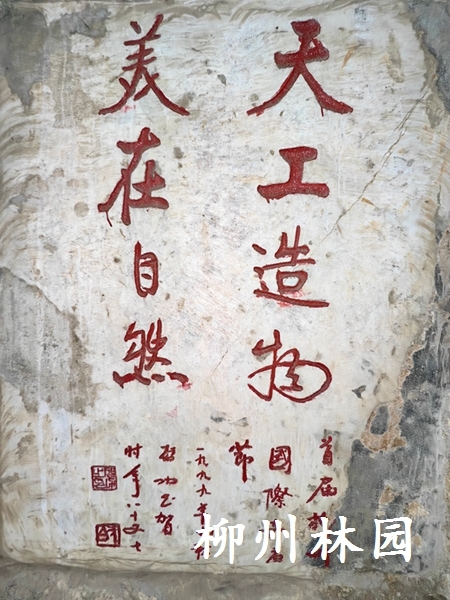 天工造物
美在自然
首届
國際
節
一九九九年
啓功
時年八十又七
柳州林园